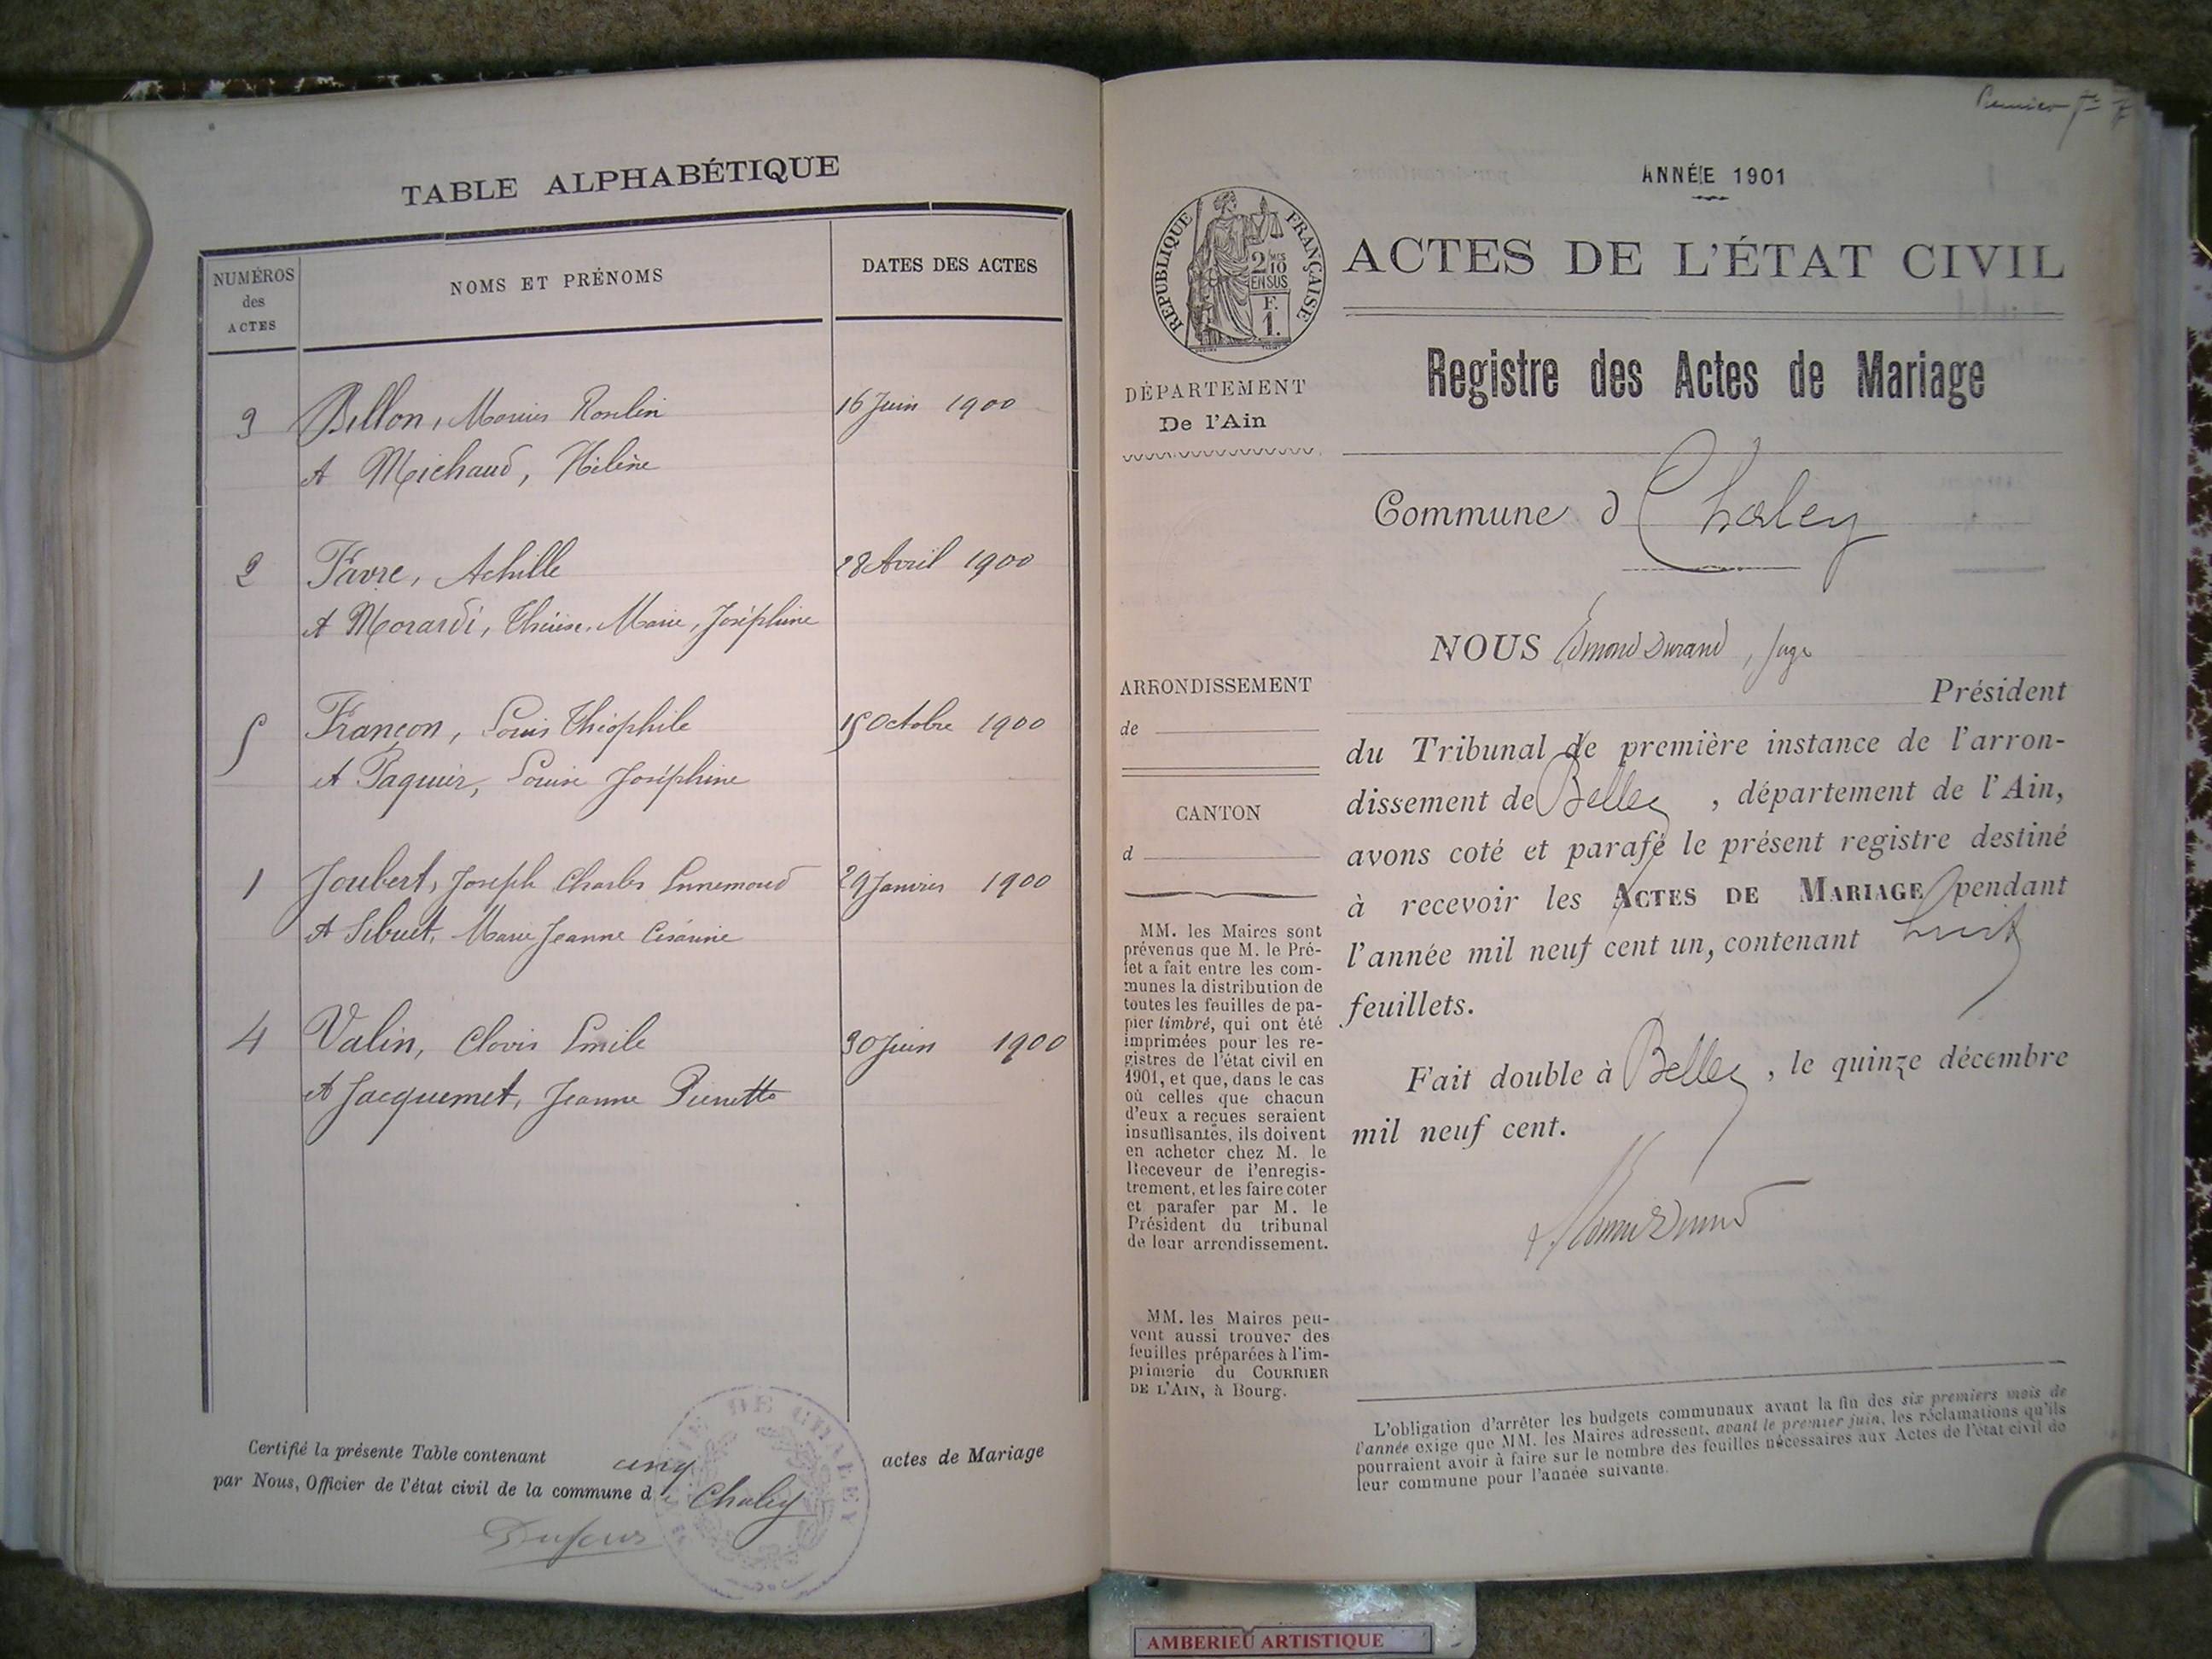 TABLE ALPHABÉTIQUE
NUMÉROS
des
ACTES
NOMS ET PRÉNOMS
DATES DES ACTES
3 Billon, Marius Roulin 16 Juin 1900
et Michaud, Hélène
2 Favre, Achille 28 Avril 1900
et Morardi, Thérèse, Marie, Joséphine
5 Françon, Louis Théophile 15 Octobre 1900
et Paquier, Louise Joséphine
1 Joubert, Joseph Charles Ennemond 29 Janvier 1900
et Sibuet, Marie Jeanne Césarine
4 Valin, Clovis Emile 30 Juin 1900
et Jacquemet, Jeanne Pierrette
Certifié la présente Table contenant cinq actes de Mariage
par Nous, Officier de l'état civil de la commune de Chaley
Dufour
MAIRIE DE CHALEY
Premier
ANNÉE 1901
RÉPUBLIQUE FRANÇAISE
2 MES
10
EN SUS
F.
1.
ACTES DE L'ÉTAT CIVIL
Registre des Actes de Mariage
DÉPARTEMENT
De l'Ain
Commune d Chaley
NOUS Edmond Durand, juge
Président
ARRONDISSEMENT
de
CANTON
d
du Tribunal de première instance de l'arron-
dissement de Belley, département de l'Ain,
avons coté et parafé le présent registre destiné
à recevoir les ACTES DE MARIAGE pendant
l'année mil neuf cent un, contenant huit
feuillets.
Fait double à Belley, le quinze décembre
mil neuf cent.
MM. les Maires sont
prévenus que M. le Pré-
fet a fait entre les com-
munes la distribution de
toutes les feuilles de pa-
pier timbré, qui ont été
imprimées pour les re-
gistres de l'état civil en
1901, et que, dans le cas
où celles que chacun
d'eux a reçues seraient
insuffisantes, ils doivent
en acheter chez M. le
Receveur de l'enregis-
trement, et les faire coter
et parafer par M. le
Président du tribunal
de leur arrondissement.
MM. les Maires peu-
vent aussi trouver des
feuilles préparées à l'im-
primerie du COURRIER
DE L'AIN, à Bourg.
L'obligation d'arrêter les budgets communaux avant la fin des six premiers mois de
l'année exige que MM. les Maires adressent, avant le premier juin, les réclamations qu'ils
pourraient avoir à faire sur le nombre des feuilles nécessaires aux Actes de l'état civil de
leur commune pour l'année suivante.
AMBERIEU ARTISTIQUE